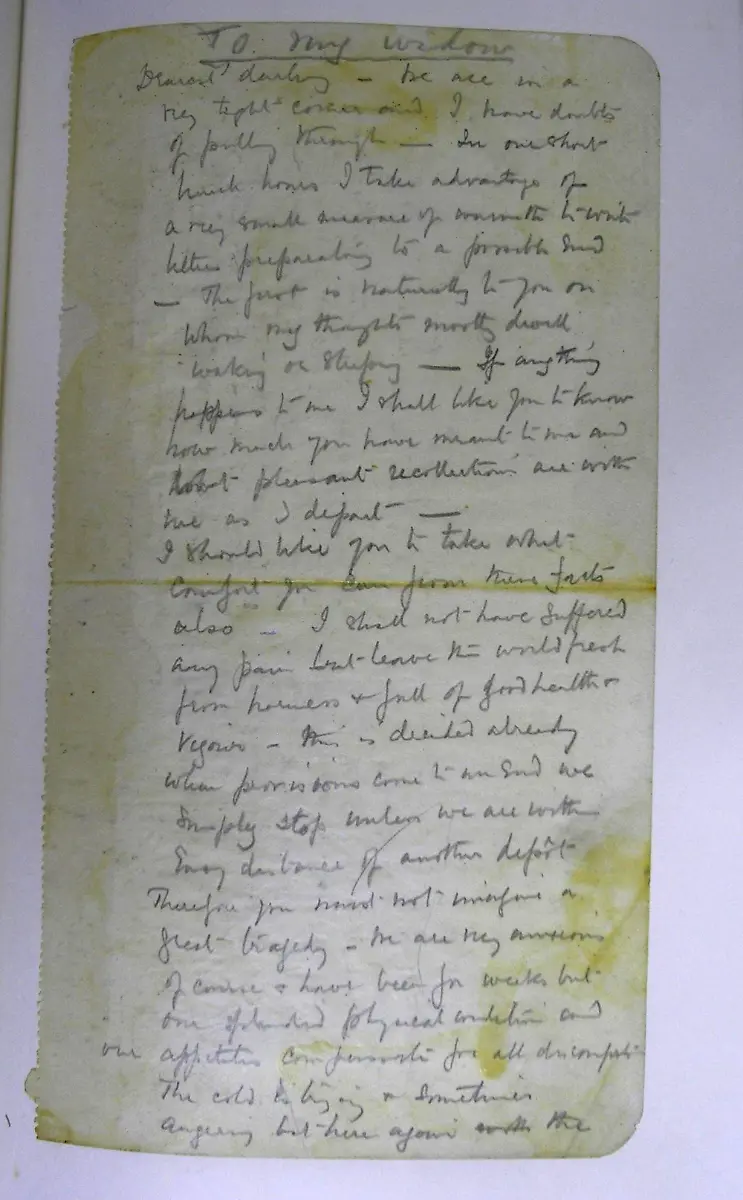 To my widow
Dearest darling – we are in a
very tight corner and I have doubts
of pulling through – In our short
lunch hours I take advantage of
a very small measure of warmth to write
letters preparatory to a possible end
– The first is naturally to you on
whom my thoughts mostly dwell
waking or sleeping – If anything
happens to me I shall like you to know
how much you have meant to me and
that pleasant recollections are with
me as I depart –
I should like you to take what
comfort you can from these facts
also – I shall not have suffered
any pain but leave the world fresh
from harness & full of good health &
vigour – this is decided already
when provisions come to an end we
simply stop unless we are within
easy distance of another depôt
Therefore you must not imagine a
great tragedy – we are very anxious
of course & have been for weeks but
our splendid physical condition and
our appetites compensate for all discomfort
The cold is biting & sometimes
angering but here again the